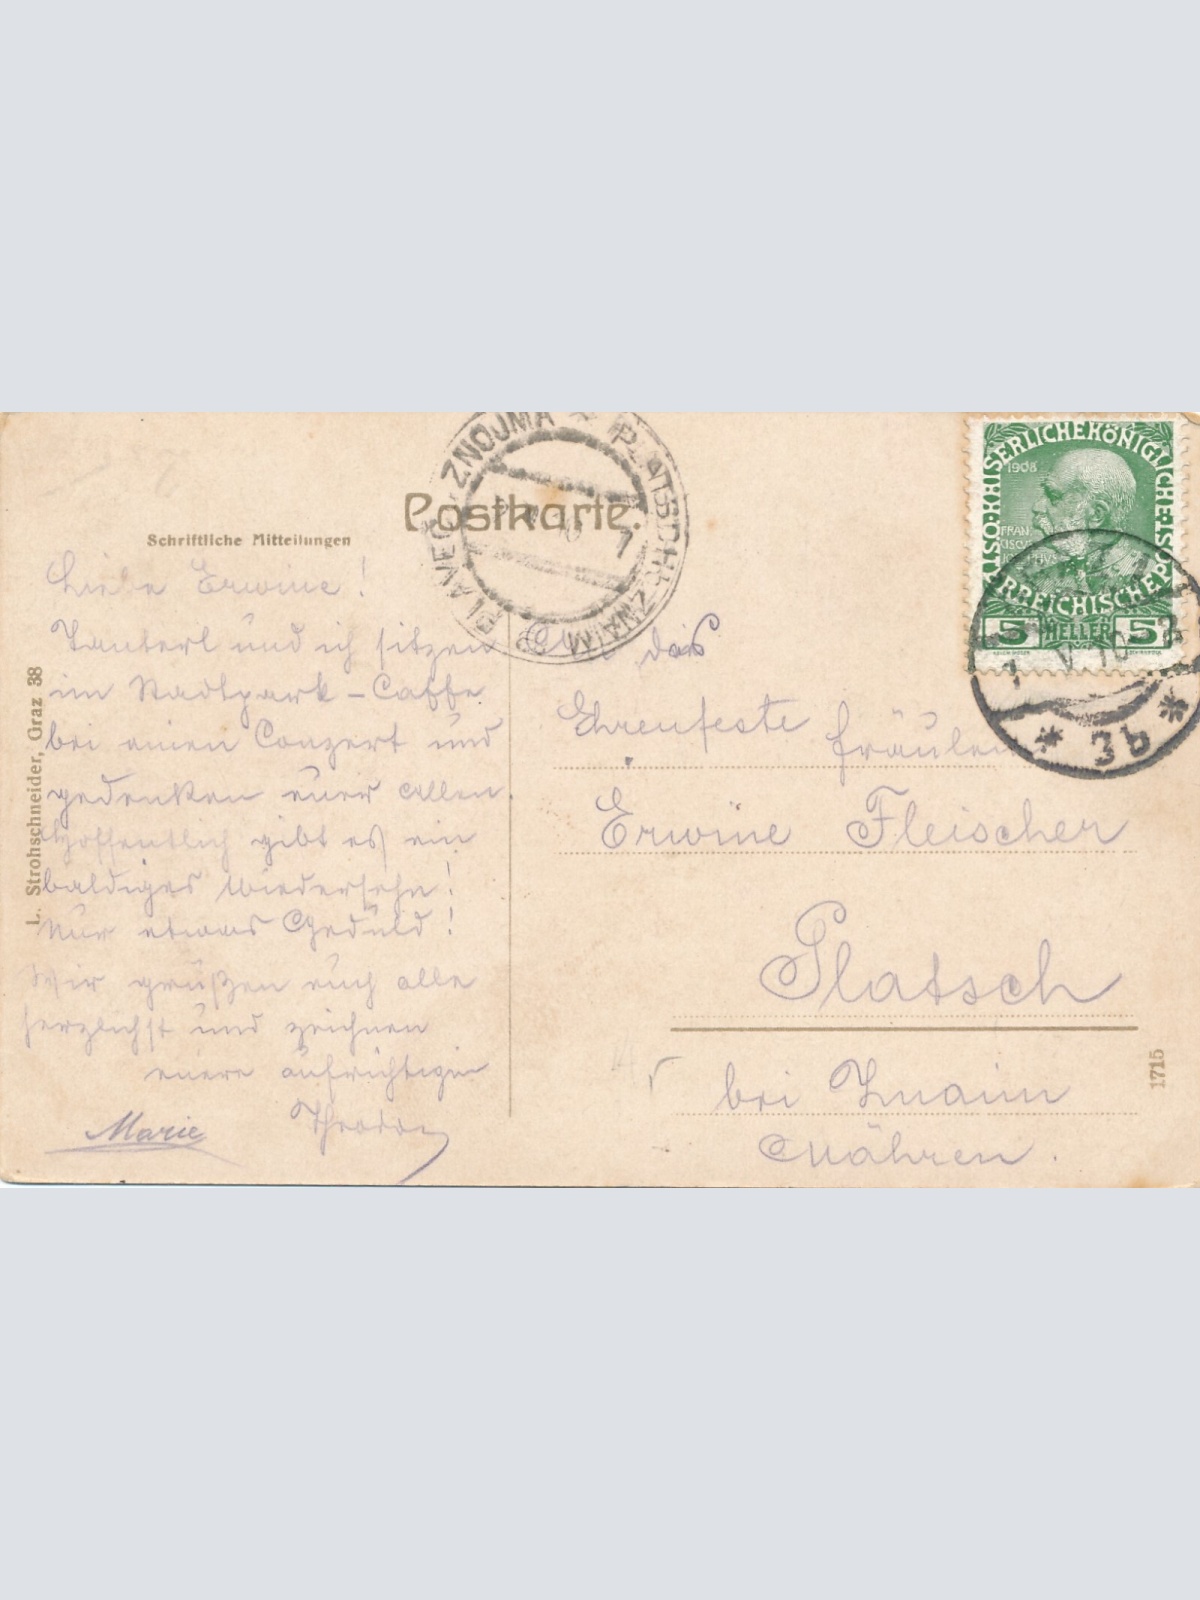 Postkarte.
Schriftliche Mitteilungen
Liebe Erwine!
Tanterl und ich sitzen
im Stadtpark-Caffe
bei einen Conzert und
gedenken eurer Allen
Hoffentlich gibt es ein
baldiges Wiedersehn!
Nur etwas Geduld!
Wir grüßen euch alle
herzlichst und zeichnen
euere aufrichtigen
Marie Theodor
L. Strohschneider, Graz 38
PLATSCH b. ZNAIM
PLAVEČ ZNOJMA
7
An das
Ehrenfeste Fräulein
Erwine Fleischer
Platsch
bei Znaim
Mähren.
1715
KAISERLICHE KÖNIGLICHE ÖSTERREICHISCHE POST
1908
FRANCISCUS JOSEPHUS
5 HELLER 5
1 V 10
* 3b *